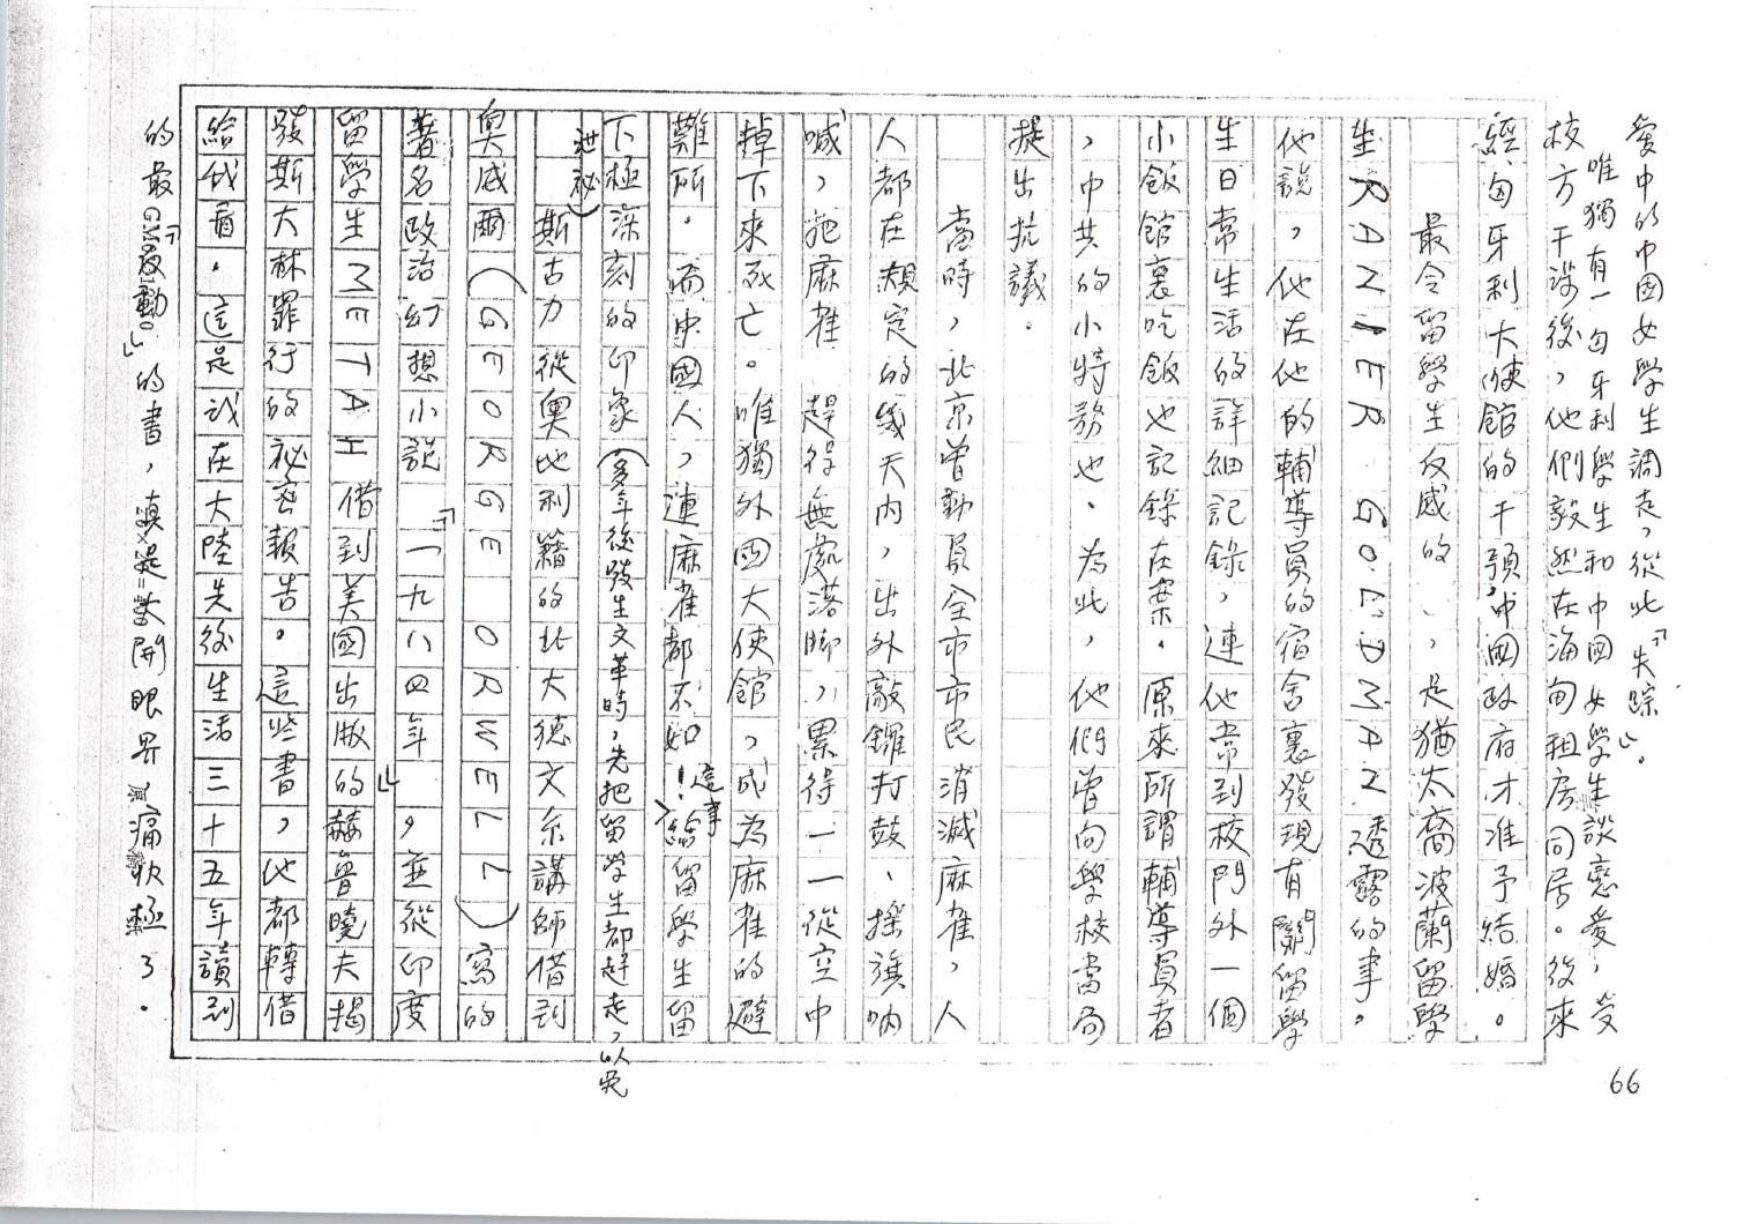 愛中的中國女學生調走，從此『失踪』。
唯獨有一匈牙利學生和中國女學生談戀愛，受
校方干涉後，他們毅然在海甸租房同居。後來
經匈牙利大使館的干預，中國政府才准予結婚。
最令留學生反感的、，是猶太裔波蘭留學
生RANIER GOLDMAN透露的事。
他說，他在他的輔導員的宿舍裏發現有關留學
生日常生活的詳細記錄，連他常到校門外一個
小飯館裏吃飯也記錄在案．原來所謂輔導員者
，中共的小特務也、為此，他們曾向學校當局
提出抗議．
當時，北京曾動員全市市民消滅麻雀，人
人都在規定的幾天內，出外敲鑼打鼓、搖旗吶
喊，把麻雀 趕得無處落脚，累得一一從空中
掉下來死亡。唯獨外國大使館，成為麻雀的避
難所．而中國人，連麻雀都不如！這事給留學生留
下極深刻的印象（多年後發生文革時，先把留學生都趕走，以免
泄祕）
斯古力從奧地利籍的北大德文系講師借到
奧威爾（GEORGE ORWELL）寫的
著名政治幻想小說『一九八四年』，並從印度
留學生METAH借到美國出版的赫魯曉夫揭
發斯大林罪行的祕密報告。這些書，他都轉借
給我看．這是我在大陸先後生活三十五年讀到
的最『反動』的書，大開眼界，痛快極了．
66